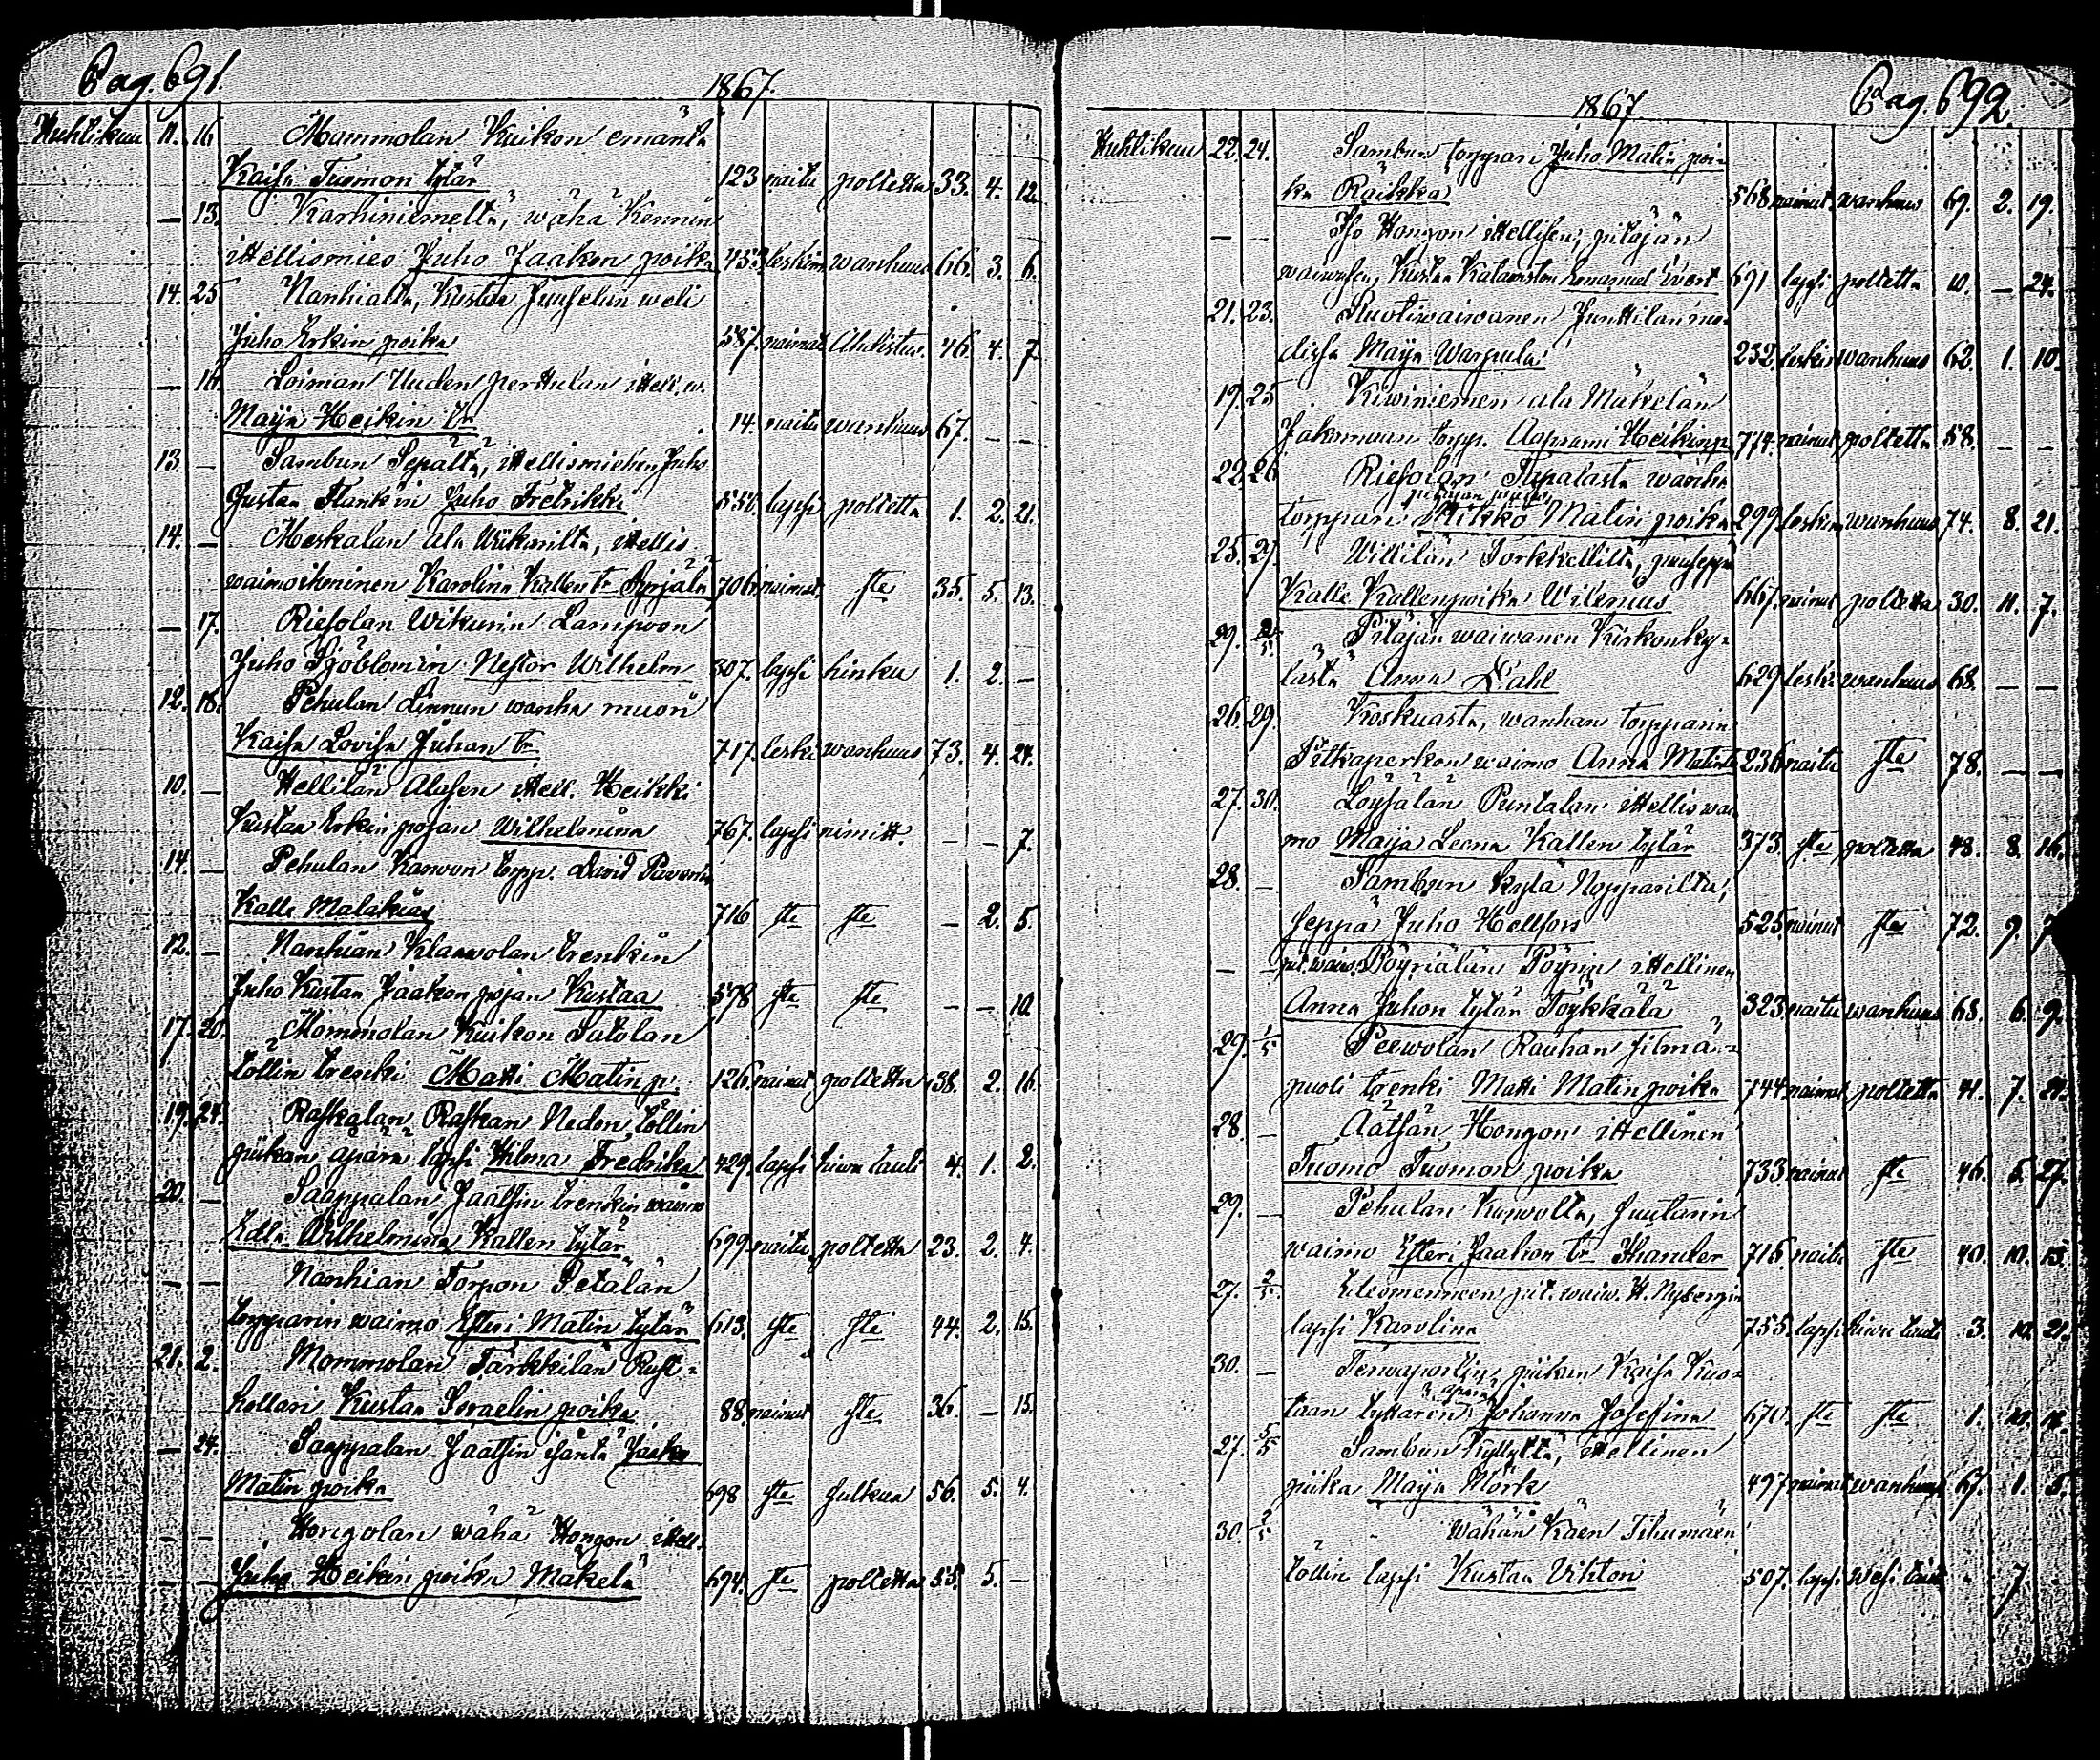 Pag. 691.
1867.
Huhtikuu 11. 16 Mommolan Kuikon emäntä
Kaisa Tuomon tytär 123 naitu poltetta 33. 4. 12.
— 13. Karhiniemeltä, wähä Kennin
ittellismies Juho Jaakon poika 453 leskim. wanhuus 66. 3. 6.
14. 25 Nanhialta, Kustaa Juuselan weli
Juho Erkin poika 587. naimat. Ahdistus. 46. 4. 7.
— 16. Loiman Uuden perttulan ittell. w.
Maija Heikin tr 14. naitu wanhuus 67. — —
13. — Sambun Sepältä, ittellismiehen Juho
Gustaa Flankin Juho Fredrikki 550. lapsi poltetta 1. 2. 21.
14. — Meskalan ala Wiikarilta, ittellis
waimoihminen Karolina Kallen tr Syrjälä 706. naimat. ste 35. 5. 13.
— 17. Riesolan Wikurin Lampoon
Juho Sjöblomin Nestor Wilhelm 307. lapsi hinku 1. 2. —
12. 18. Pehulan Linnun wanha muori
Kaisa Lovisa Juhan tr 717. leski wanhuus 73. 4. 24.
10. — Hellilän Alasen ittell. Heikki
Kustaa Erkin pojan Wilhelmiina 767. lapsi nimitt. — — 7.
14. — Pehulan Karwon torpp. David Paventin
Kalle Malakias 716 ste ste — 2. 5.
12. — Nanhian Klaawolan trenkin
Juho Kustaa Jaakon pojan Kustaa 578 ste ste — — 10.
17. 20. Mommolan Kuikon Satolan
töllin trenki Matti Matin p. 126. nainut poltetta 38. 2. 16.
19. 24. Raskalan Raskan Nedon töllin
piikan äpärä lapsi Hilma Fredrika 429. lapsi hiwu tauti 4. 1. 2.
20. — Saappalan Jaatsin trenkin waimo
Edla Wilhelmiina Kallen tytär 699. naitu poltetta 23. 2. 4.
— — Nanhian Torpon Petälän
torpparin waimo Esteri Matin tytär 613. ste ste 44. 2. 15.
21. 2. Mommolan Tärkkilän Rust-
hollari Kustaa Israelin poika 88 nainut ste 36. — 15.
— 24. Saappalan Jaatsin isäntä Jaako
Matin poika 698 ste hulkua 56. 5. 4.
— — Hongolan wähä Hongon ittell.
— — Juho Heikin poika Mäkelä 694. ste poltetta 55. 5. —
1867.
Pag. 692.
Huhtikuu 22. 24. Sambun torppari Juho Matin poi-
ka Räikkä 568 nainut. wanhuus 69. 2. 19.
— — Iso Hongon ittellisen, pitäjän
waiwasen, Kustaa Emanuel Evert 691 lapsi poltetta 10. — 24.
21. 23. Ruotiwaiwanen Junttilan muo-
dissa Maija Warpula 232. leskiw. wanhuus 62. 1. 10.
19. 25 Kiwiniemen ala Mäkelän
torpp. Aaprami Heikinp. 774. nainut poltetta 58. — —
22. 26 Riesolan Tapalasta wanha
pitäjän waiw.
torppari Mikko Matin poika 299 leskim. wanhuus 74. 8. 21.
25. 27. Willilän Torkkellilta, puuseppä
Kalle Kallenpoika Wilenius 667. nainut poltetta 30. 11. 7.
29. 2/5. Pitäjän waiwanen Kirkonky-
lästä Anna Dahl 629 leski wanhuus 68. — —
26. 29. Koskuasta, wanhan torpparin
Pitkäperkon waimo Anna Matint. 236 naitu ste 78. — —
27. 30. Löysälän Puntalan ittellis wai-
mo Maija Leena Kallen tytär 373. ste poltetta 48. 8. 16.
28. — Sambun kylä Nopparilta,
seppä Juho Hellfors 525. nainut ste 72. 9. 7
— — pit. waiw. Pöyriälän Pöyrin ittellinen
Anna Juhon tytär Töykkälä 323. naitu wanhuus 68. 6. 9.
29. 1/5 Peewolan Rauhan silmä-
puoli trenki Matti Matin poika 744 naimat poltetta 41. 7. 21.
28. — Äätsän Hongon ittellinen
Tuomo Tuomon poika 733 nainut ste 46. 5. 27.
29. — Pehulan Karwolta, suutarin
waimo Esteri Jaakon tr Thander 716. naitu ste 40. 10. 13.
27. 2/5. pit. waiw. H. Nybergin
lapsi Karolina 755. lapsi hiwu tauti 3. 10. 21.
30. — piikan Kaisa Kus-
äpärä
taan tyttären Johanna Josefiina 670. ste ste 1. 10. 14.
27. 5/5 Sambun ittellinen
piika Maija Mörk 497 naimat wanhuus 67. 1. 5.
30. 2/5 Wähän Käen Tihumäen
töllin lapsi Kustaa Vihtori 507. lapsi wesi tauti - 7 -